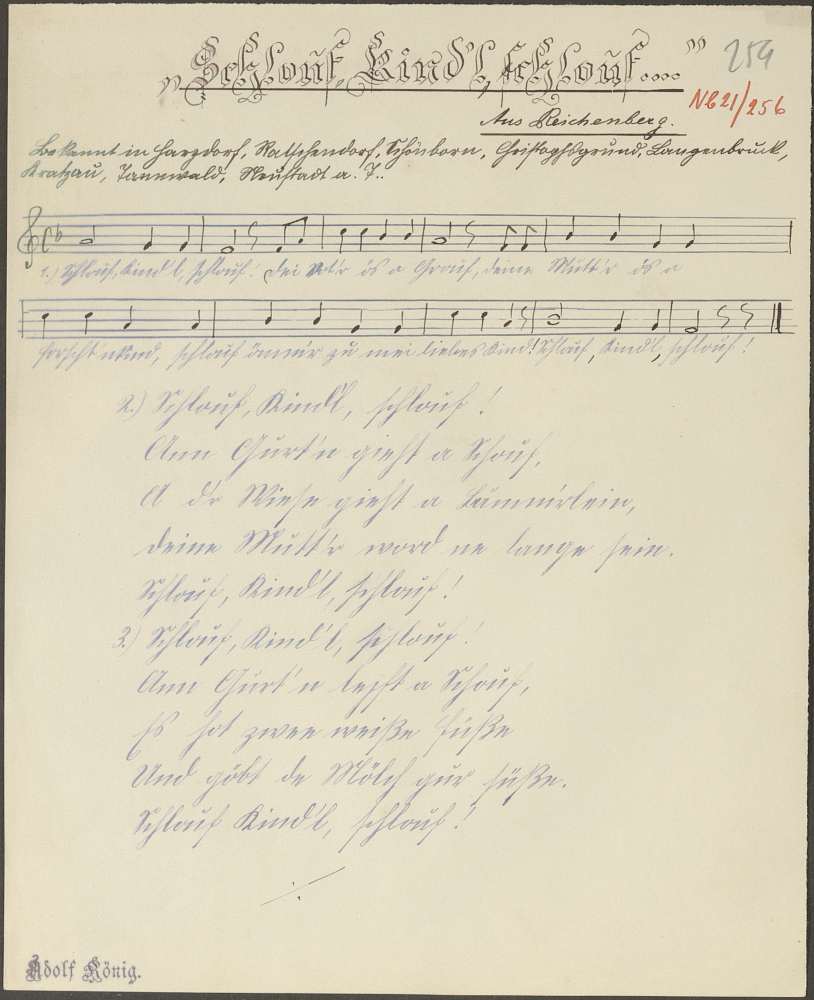 „Schlouf, Kind'l, schlouf...." 254
NB21/256
Aus Reichenberg.
Bekannt in Harzdorf, Ratschendorf, Schönborn, Christophsgrund, Langenbruck,
Kratzau, Tannwald, Neustadt a. T..
1.) Schlouf, Kind'l, schlouf! dei Vot'r ös a Grouf, deine Mutt'r ös a
schlouf ömm'r zu mei liebes Kind! Schlouf, Kind'l, schlouf!
2.) Schlouf, Kind'l, schlouf!
Ann Gurt'n gieht a Schouf,
A d'r Wiese gieht a Lämm'rlein,
deine Mutt'r word ne lange sein.
Schlouf, Kind'l, schlouf!
3.) Schlouf, Kind'l, schlouf!
Ann Gurt'n a Schouf,
Es hot zwee weiße Füße
Und göbt de Mölch gur süße.
Schlouf Kind'l, schlouf!
Adolf König.